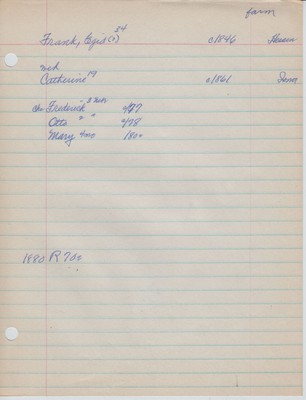 farm
Frank, Egid (?) 54 01846 Hesse
mch
Catherine 19 01861 Iowa
chr Frederick 3 mos
Otto " " 4/78
Mary 4 mo 180
1880 R 700